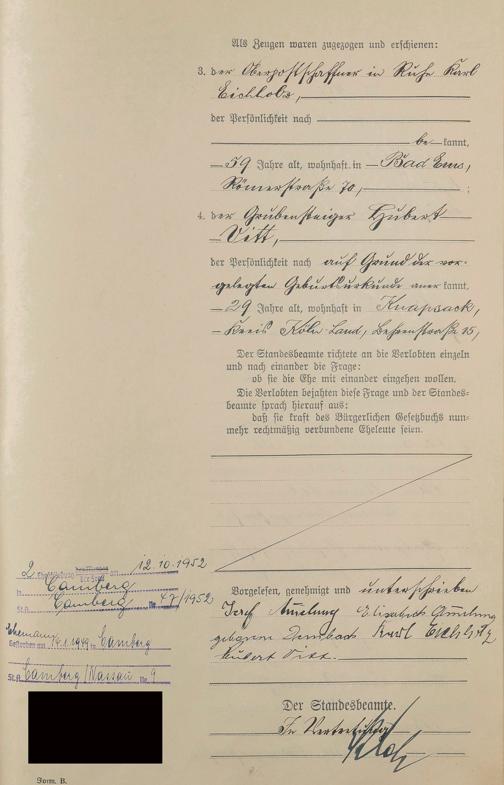 Als Zeugen waren zugezogen und erschienen:
3. der Oberpostschaffner in Ruhe Karl
Eichholz,
der Persönlichkeit nach
be kannt,
59 Jahre alt, wohnhaft in Bad Ems,
Römerstraße 70, ;
4. der Grubensteiger Hubert
Vitt,
der Persönlichkeit nach auf Grund der vor-
gelegten Geburtsurkunde aner kannt,
29 Jahre alt, wohnhaft in Knapsack,
Kreis Köln-Land, Behrenstraße 15,
Der Standesbeamte richtete an die Verlobten einzeln
und nach einander die Frage:
ob sie die Ehe mit einander eingehen wollen.
Die Verlobten bejahten diese Frage und der Standes-
beamte sprach hierauf aus:
daß sie kraft des Bürgerlichen Gesetzbuchs nun-
mehr rechtmäßig verbundene Eheleute seien.
2. Eheschließung der Frau am 12.10.1952
in Camberg
St.A. Camberg Nr. 47/1952
Ehemann
Gestorben am 1949 in Camberg
St.A. Camberg/Nassau Nr. 9
Vorgelesen, genehmigt und unterschrieben
Josef Amelung Elisabeth Amelung
geborene Dernbach Karl Eichholz
Hubert Vitt.
Der Standesbeamte.
In Vertretung
Form. B.